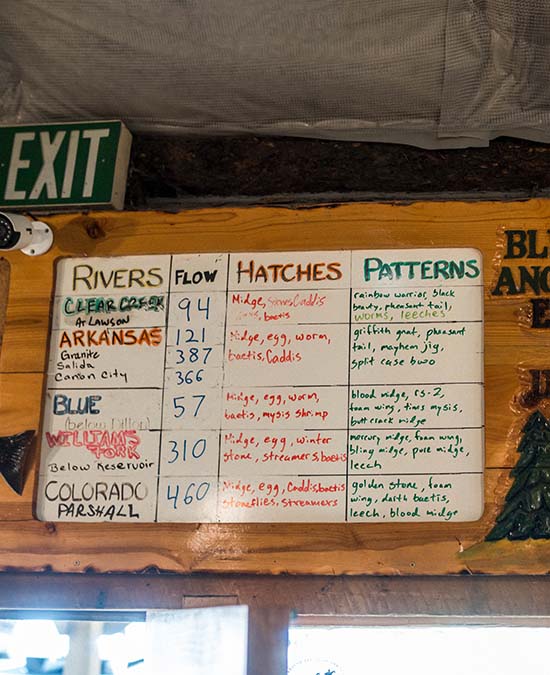 EXIT
RIVERS FLOW HATCHES PATTERNS
CLEAR CREEK
At LAWSON
94
Midge, Caddis
baetis
rainbow warrior, black
beauty, pheasant tail,
worms, leeches
ARKANSAS
Granite
Salida
Canon City
121
387
366
Midge, egg, worm,
baetis, Caddis
griffith gnat, pheasant
tail, mayhem jig,
split case buzo
BLUE
(below Dillon)
57
Midge, egg, worm,
baetis, mysis shrimp
blood midge, rs-2,
foam wing, tims mysis,
butt crack midge
WILLIAMS
FORK
Below Reservoir
310
Midge, egg, winter
stone, streamers, baetis
mercury midge, foam wing,
bling midge, pure midge,
leech
COLORADO
PARSHALL
460
Midge, egg, Caddis, baetis
stoneflies, streamers
golden stone, foam
wing, darth baetis,
leech, blood midge
BL
ANG
E